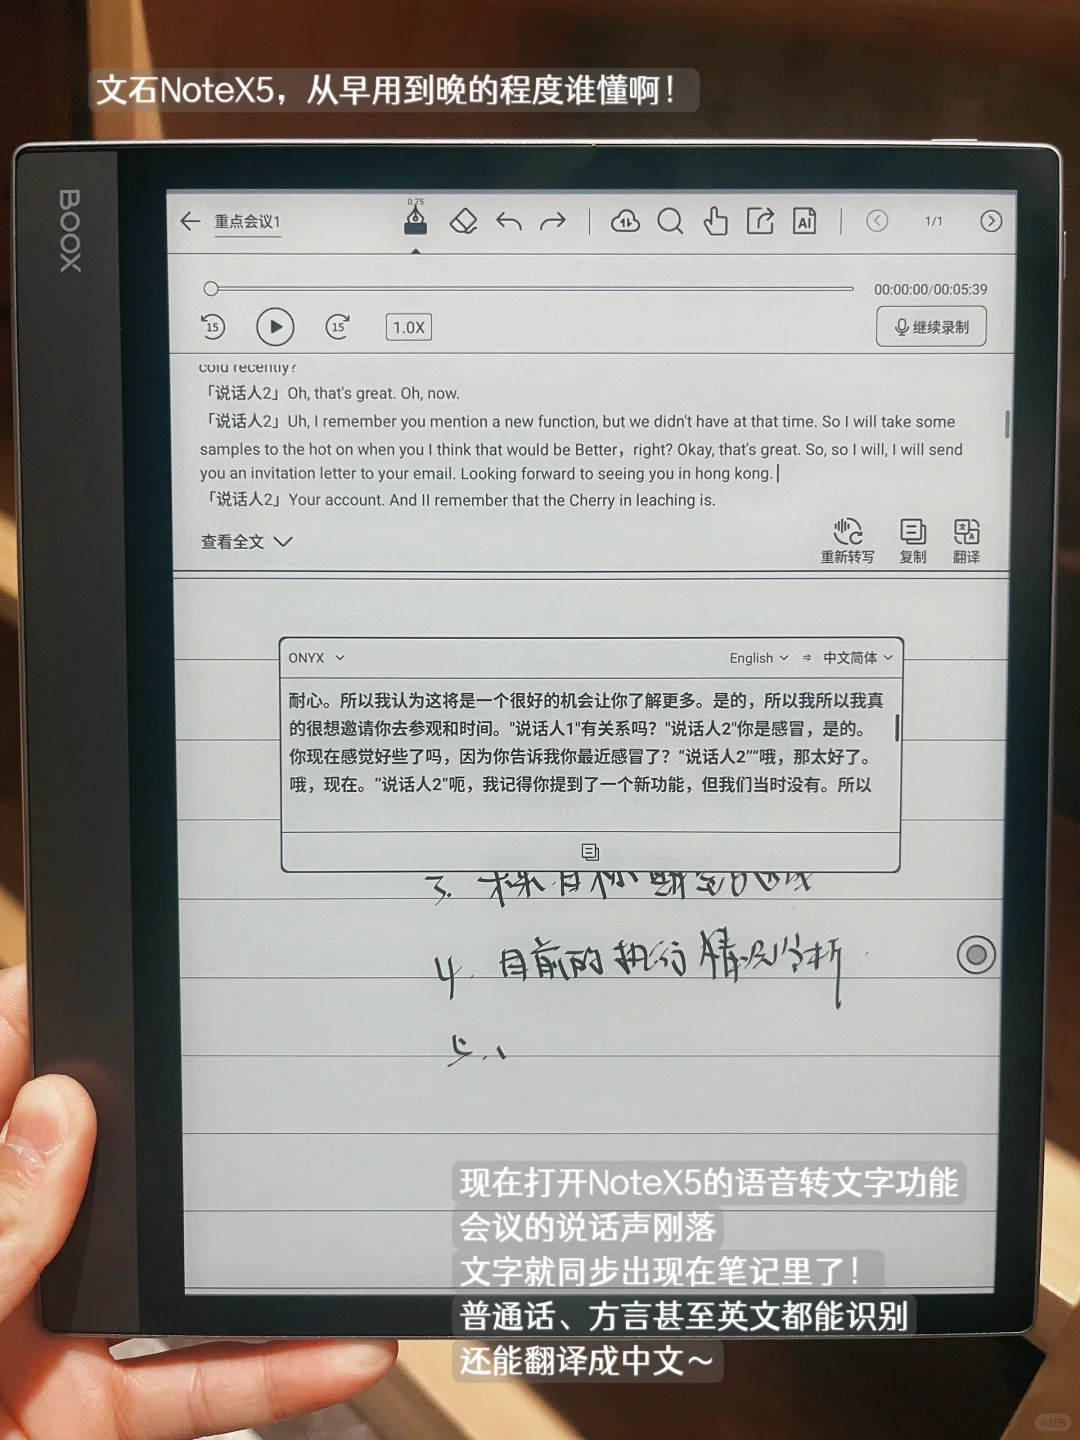 文石NoteX5，从早用到晚的程度谁懂啊！
BOOX
重点会议1
0.75
AI
1/1
00:00:00/00:05:39
15
15
1.0X
继续录制
cold recently?
「说话人2」Oh, that's great. Oh, now.
「说话人2」Uh, I remember you mention a new function, but we didn't have at that time. So I will take some
samples to the hot on when you I think that would be Better，right? Okay, that's great. So, so I will, I will send
you an invitation letter to your email. Looking forward to seeing you in hong kong.
「说话人2」Your account. And II remember that the Cherry in leaching is.
查看全文
重新转写
复制
翻译
ONYX
English
中文简体
耐心。所以我认为这将是一个很好的机会让你了解更多。是的，所以我所以我真
的很想邀请你去参观和时间。"说话人1"有关系吗？"说话人2"你是感冒，是的。
你现在感觉好些了吗，因为你告诉我你最近感冒了？“说话人2”“哦，那太好了。
哦，现在。”说话人2“呃，我记得你提到了一个新功能，但我们当时没有。所以
3.
4. 目前的执行情况分析
5.、
现在打开NoteX5的语音转文字功能
会议的说话声刚落
文字就同步出现在笔记里了！
普通话、方言甚至英文都能识别
还能翻译成中文～